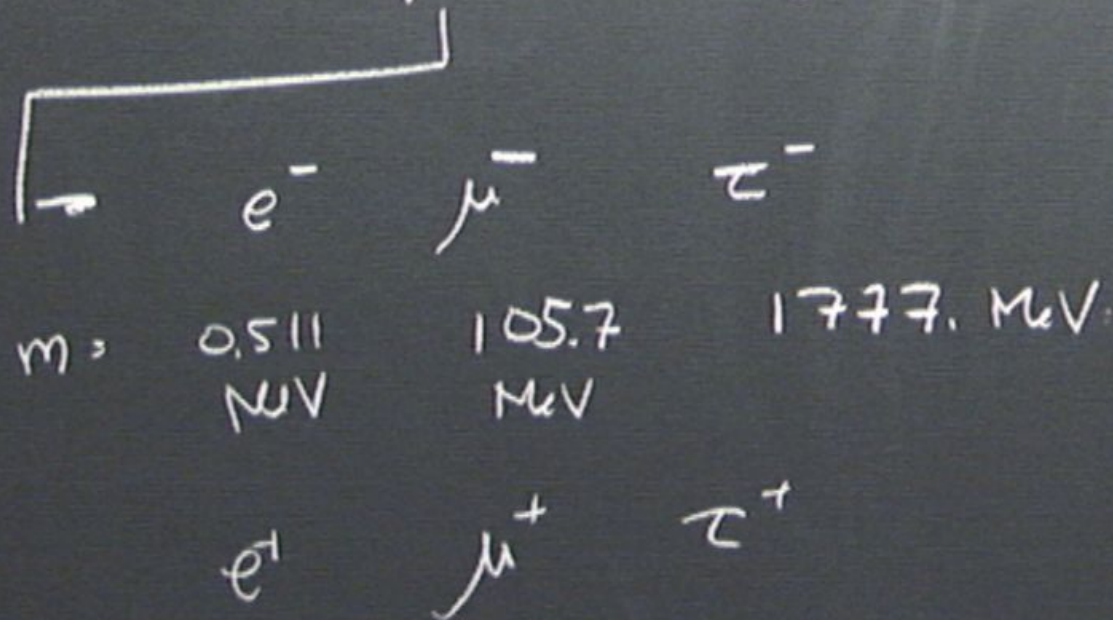 e⁻ μ⁻ τ⁻
m = 0.511 MeV 105.7 MeV 1777. MeV
e⁺ μ⁺ τ⁺